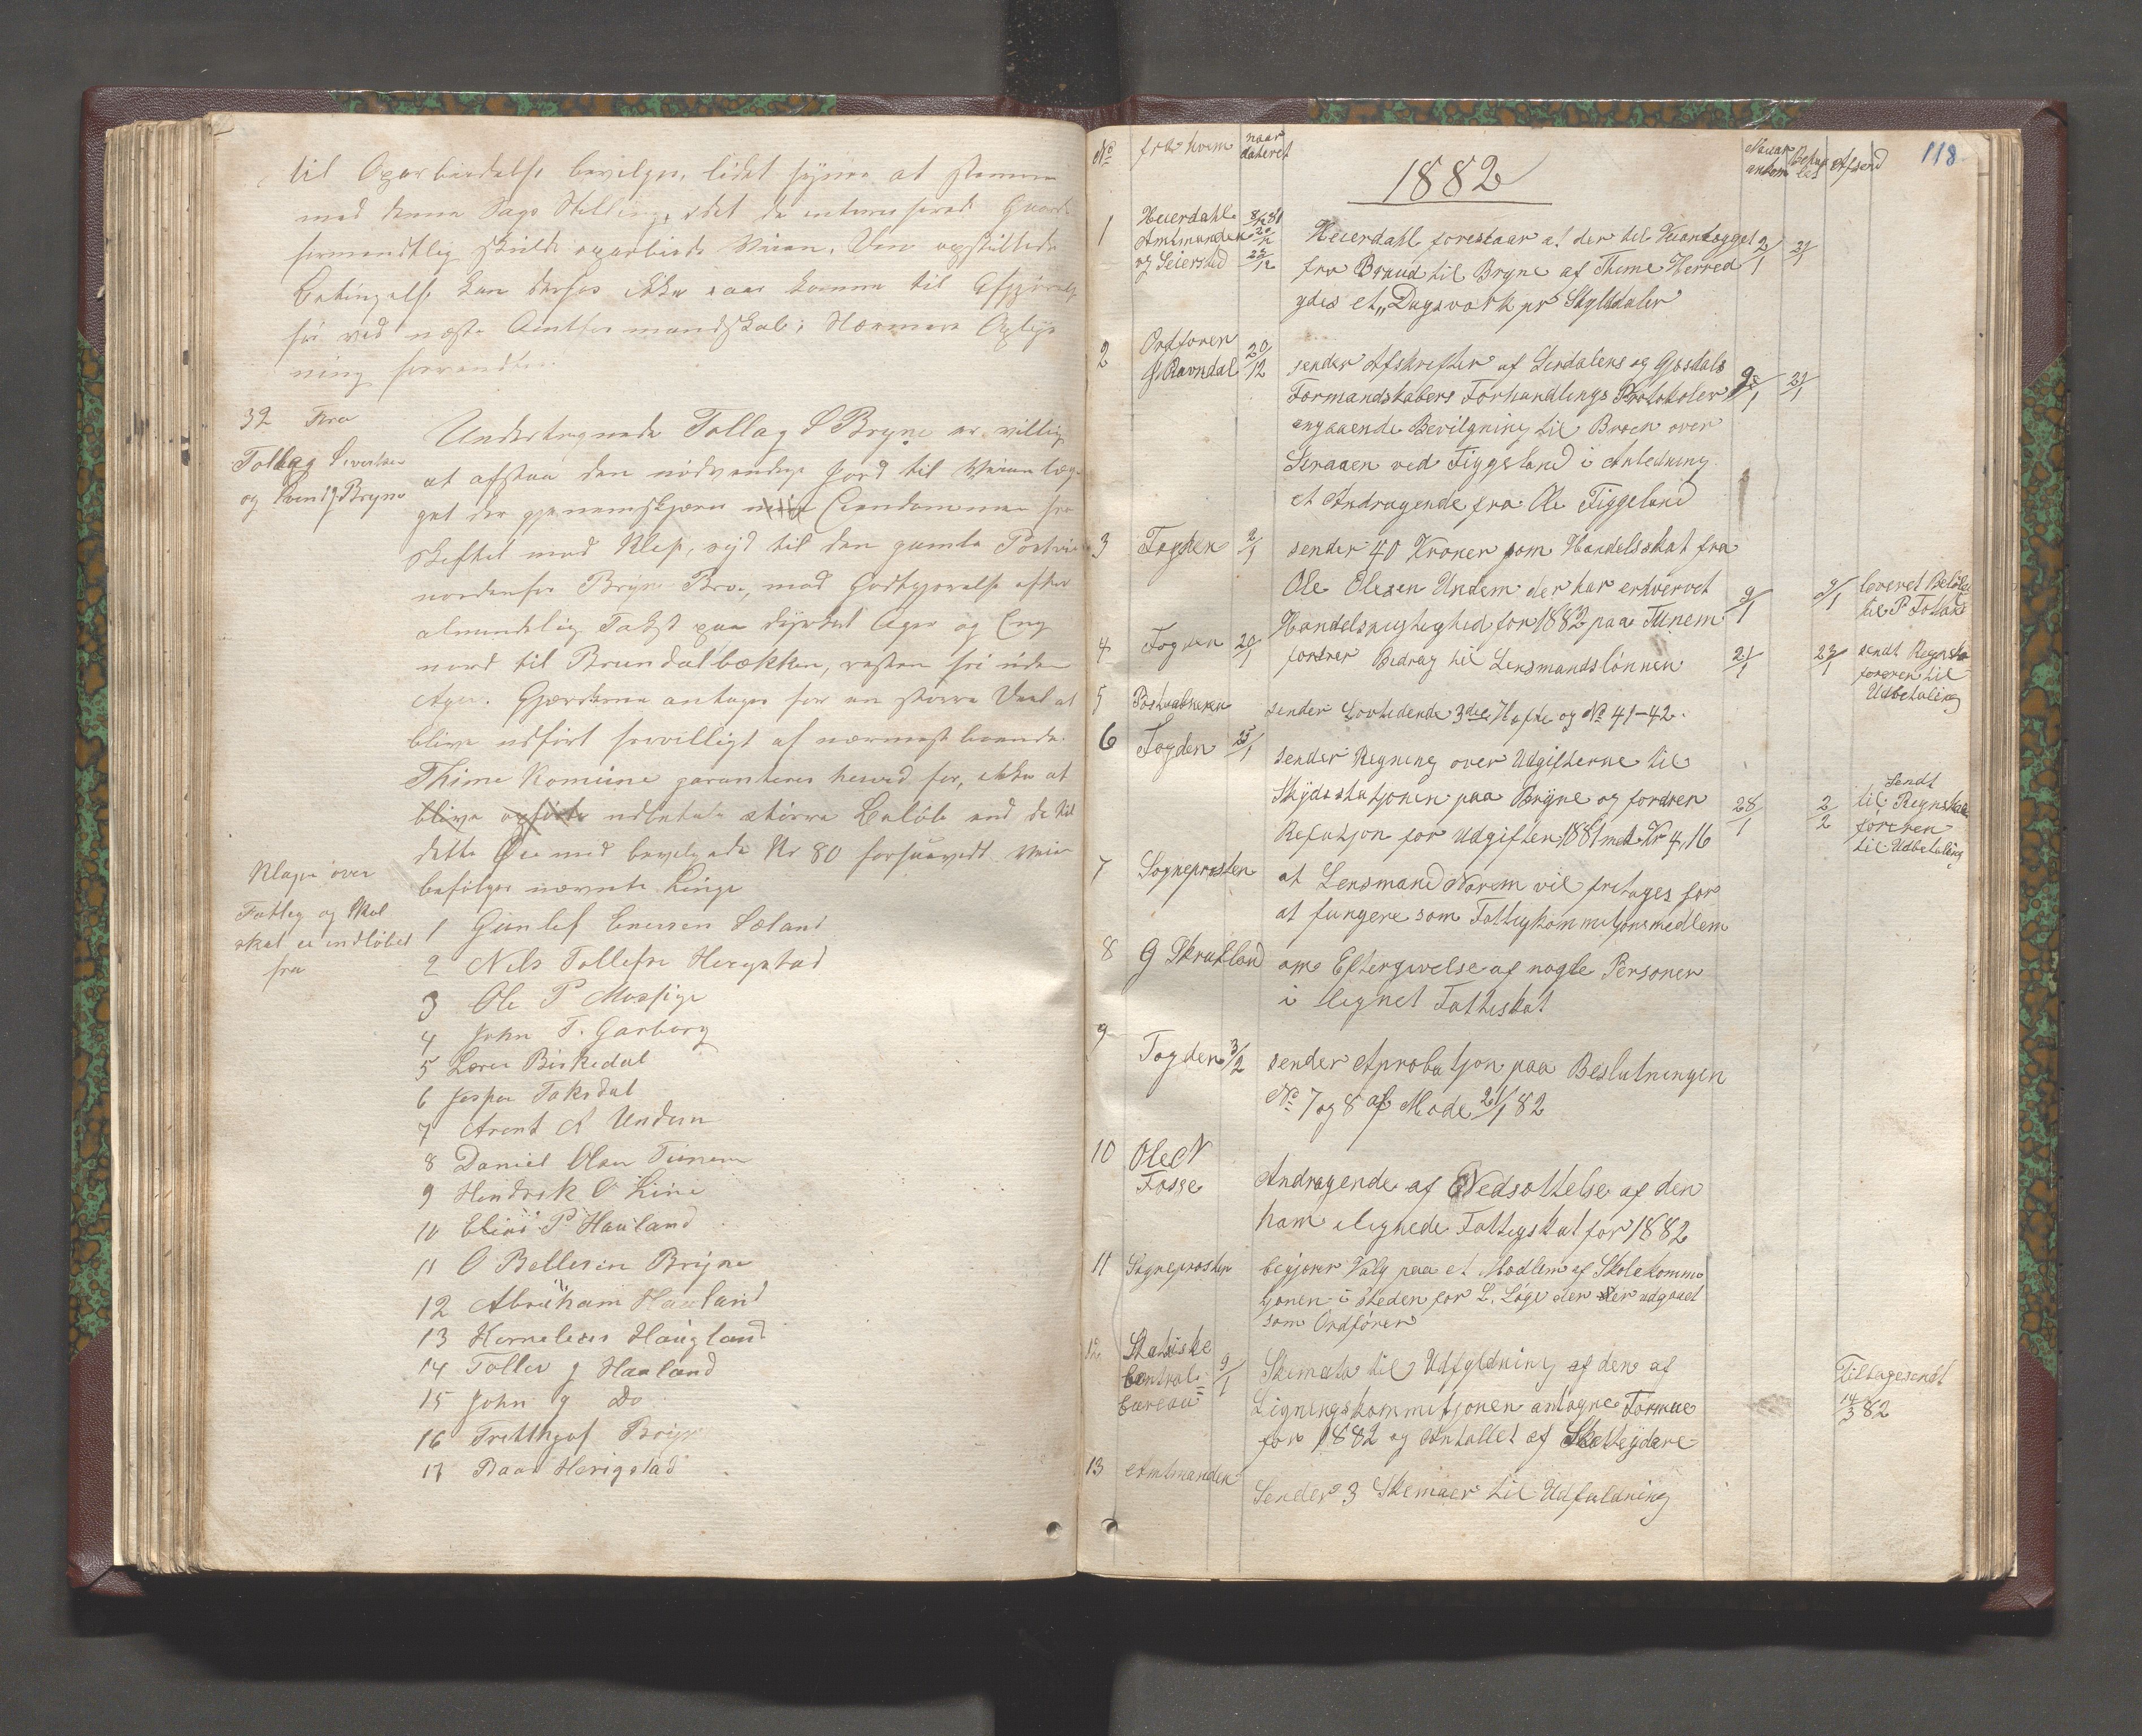 til Oparbeidelse bevilges, lidet synes at stemme
med denne Sags Stilling, idet de interesserede
formentlig skulde oparbeide Veien. Den opstillede
Betingelse kan derfor ikke komme til Afgjørelse
før ved næste Amtsformandskab; Nærmere Oplys
ning
32 Fra
Tollag Sivertsen
og Svend J Bryne
Undertegnede Tollag S Bryne er villig
at afstaa den nødvendige Jord til Veianlæg
get der gjenemskjærer Eiendommen fra
skiftet med Klep, syd til den gamle Postvei
nordenfor Bryne Bro, mod Godtgjørelse efter
almindelig Takst paa dyrket Ager og Eng
nord til Brundalbækken, resten fri uden
Ager. Gjærderne antages for en større Deel at
blive udført frivilligt af nærmest boende.
Thime Komune garanteres herved for, ikke at
blive opførte udbetale større Beløb end de til
dette Øiemed bevilgede Kr 80 forsaavidt Veien
befølger nævnte Linje
Klage over
Fattig og Skol
skat er indløbet
fra
1 Gunlef Enersen Sæland
2 Nils Tollefse Herigstad
3 Ole P Mossige
4 John T. Garborg
5 Lars Birkedal
6 Jesper Taksdal
7 Arent A Undem
8 Daniel Olsen Tunem
9 Hendrik O Line
10 Elias P Hauland
11 O Bellesen Bryne
12 Abraham Hauland
13 Kornelius Haugland
14 Tollev J Haaland
15 John J Do
16 Bryne
17 Baar Herigstad
118
No fra hvem naar dateret
1882
Naar ankom Behandles Afsend
1 Heierdahl 8/12 81
Amtmanden 20/12
og Seiersted 22/12
Heierdahl foreslaar at der til Veianlægget 2/1 21/1
fra Braud til Bryne af Thime Herred
ydes et „Dagsværk pr Skylddaler"
2 Ordføren
J. Ravndal 20/12
sender Afskrifter af Sirdalens og Gjesdals
Formandskabers Forhandlings Protokoler 9/1 21/1
angaaende Bevilgning til Broen over
Siraaen ved Figgeland i Anledning
et Andragende fra Ole Figgeland
3 Fogden 2/1 sender 40 Kroner som Handelsskat fra
Ole Olesen Undem der har erhvervet
Handelsrettighed for 1882 paa Tunem 9/1 9/1 leveret Beløbet
til P Fotland
4 Fogden 20/1 fordrer Bedrag til Lensmandslønnen 21/1 23/1 sendt Regnska
føreren til
Udbetaling
5 Postaabneren sender Lovtidende 3die Hefte og No 41-42.
6 Fogden 25/1 sender Regning over Udgifterne til
Skydsstasjonen paa Bryne og fordrer 28/1 2/2 Sendt
til Regnskab
føreren
til Udbetaling
Refusjon for Udgiften 1881 med Kr 4,16
7 Sognepresten at Lensmand Norem vil fritages for
at fungere som Fattigkommisjonsmedlem
8 G Skrutland om Eftergivelse af nogle Personer
i lignet Fattiskat
9 Fogden 3/2 sender Aprobatjon paa Beslutningen
No 7 og 8 af Møde 21/1 82
10 Ole N
Fosse
Andragende af Nedsættelse af den
ham ilignede Fattigskat for 1882
11 Sognepresten begjærer Valg paa et Medlem af Skolekommi
sjonen i Steden for L. Lõge der er udgaaet
som Ordfører
12 Statiske
Central=
bureau 9/1
Skemata til Udfyldning af den af
Ligningskommisjonen antagne Formue
for 1882 og Antallet af Skatteydere
Tilbagesendt
14/3 82
13 Amtmanden Sender 3 Skemaer til Udfuldning